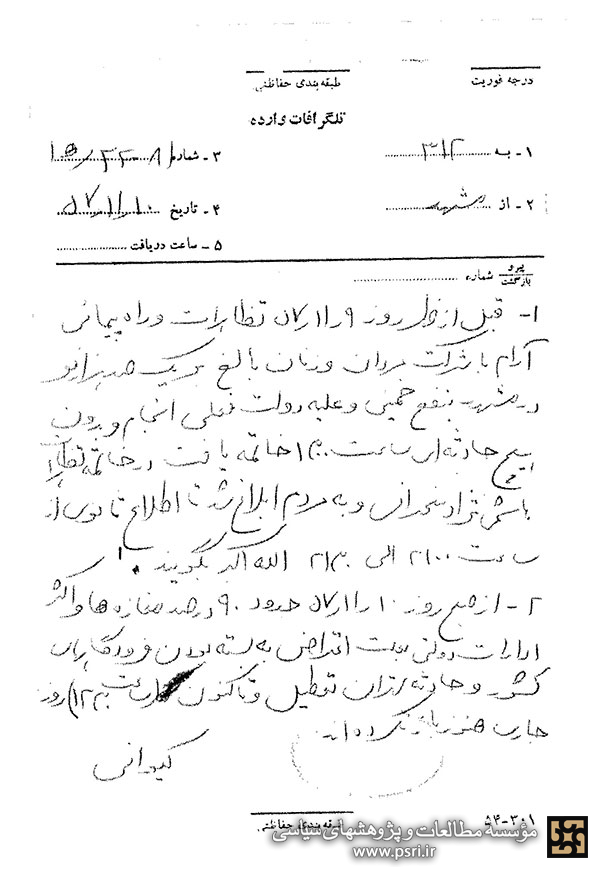 درجه فوریت
طبقه‌بندی حفاظتی
تلگرافات وارده
۱ـ به ۳۱۲
۳ـ شماره
۲ـ از مشهد
۴ـ تاریخ ۵۷/۱۱/۱۰
۵ ـ ساعت دریافت
پیرو
بازگشت شماره
۱- قبل از ظهر روز ۵۷/۱۱/۹ تظاهرات و راه پیمائی
آرام با شرکت مردان و زنان بالغ بر یکصد هزار نفر
در مشهد بنفع خمینی و علیه دولت فعلی انجام و بدون
هیچ حادثه‌ای ساعت خاتمه یافت در خاتمه تظاهرات
هاشمی نژاد سخنرانی و به مردم ابلاغ شد تا اطلاع ثانوی از
ساعت ۲۱۰۰ الی ۲۱۳۰ الله اکبر بگویند.
۲- از صبح روز ۵۷/۱۱/۱۰ حدود ۹۰ درصد مغازه ها و اکثر
ادارات دولتی بعلت اعتراض به بسته بودن فرودگاههای
کشور و حادثه تهران تعطیل و تاکنون ساعت ۱۲۳۰ روز
جاری هنوز باز نکرده‌اند.
کیوانی
طبقه‌بندی حفاظتی
۵۴-۳۰۱
مؤسسه مطالعات و پژوهشهای سیاسی
www.psri.ir